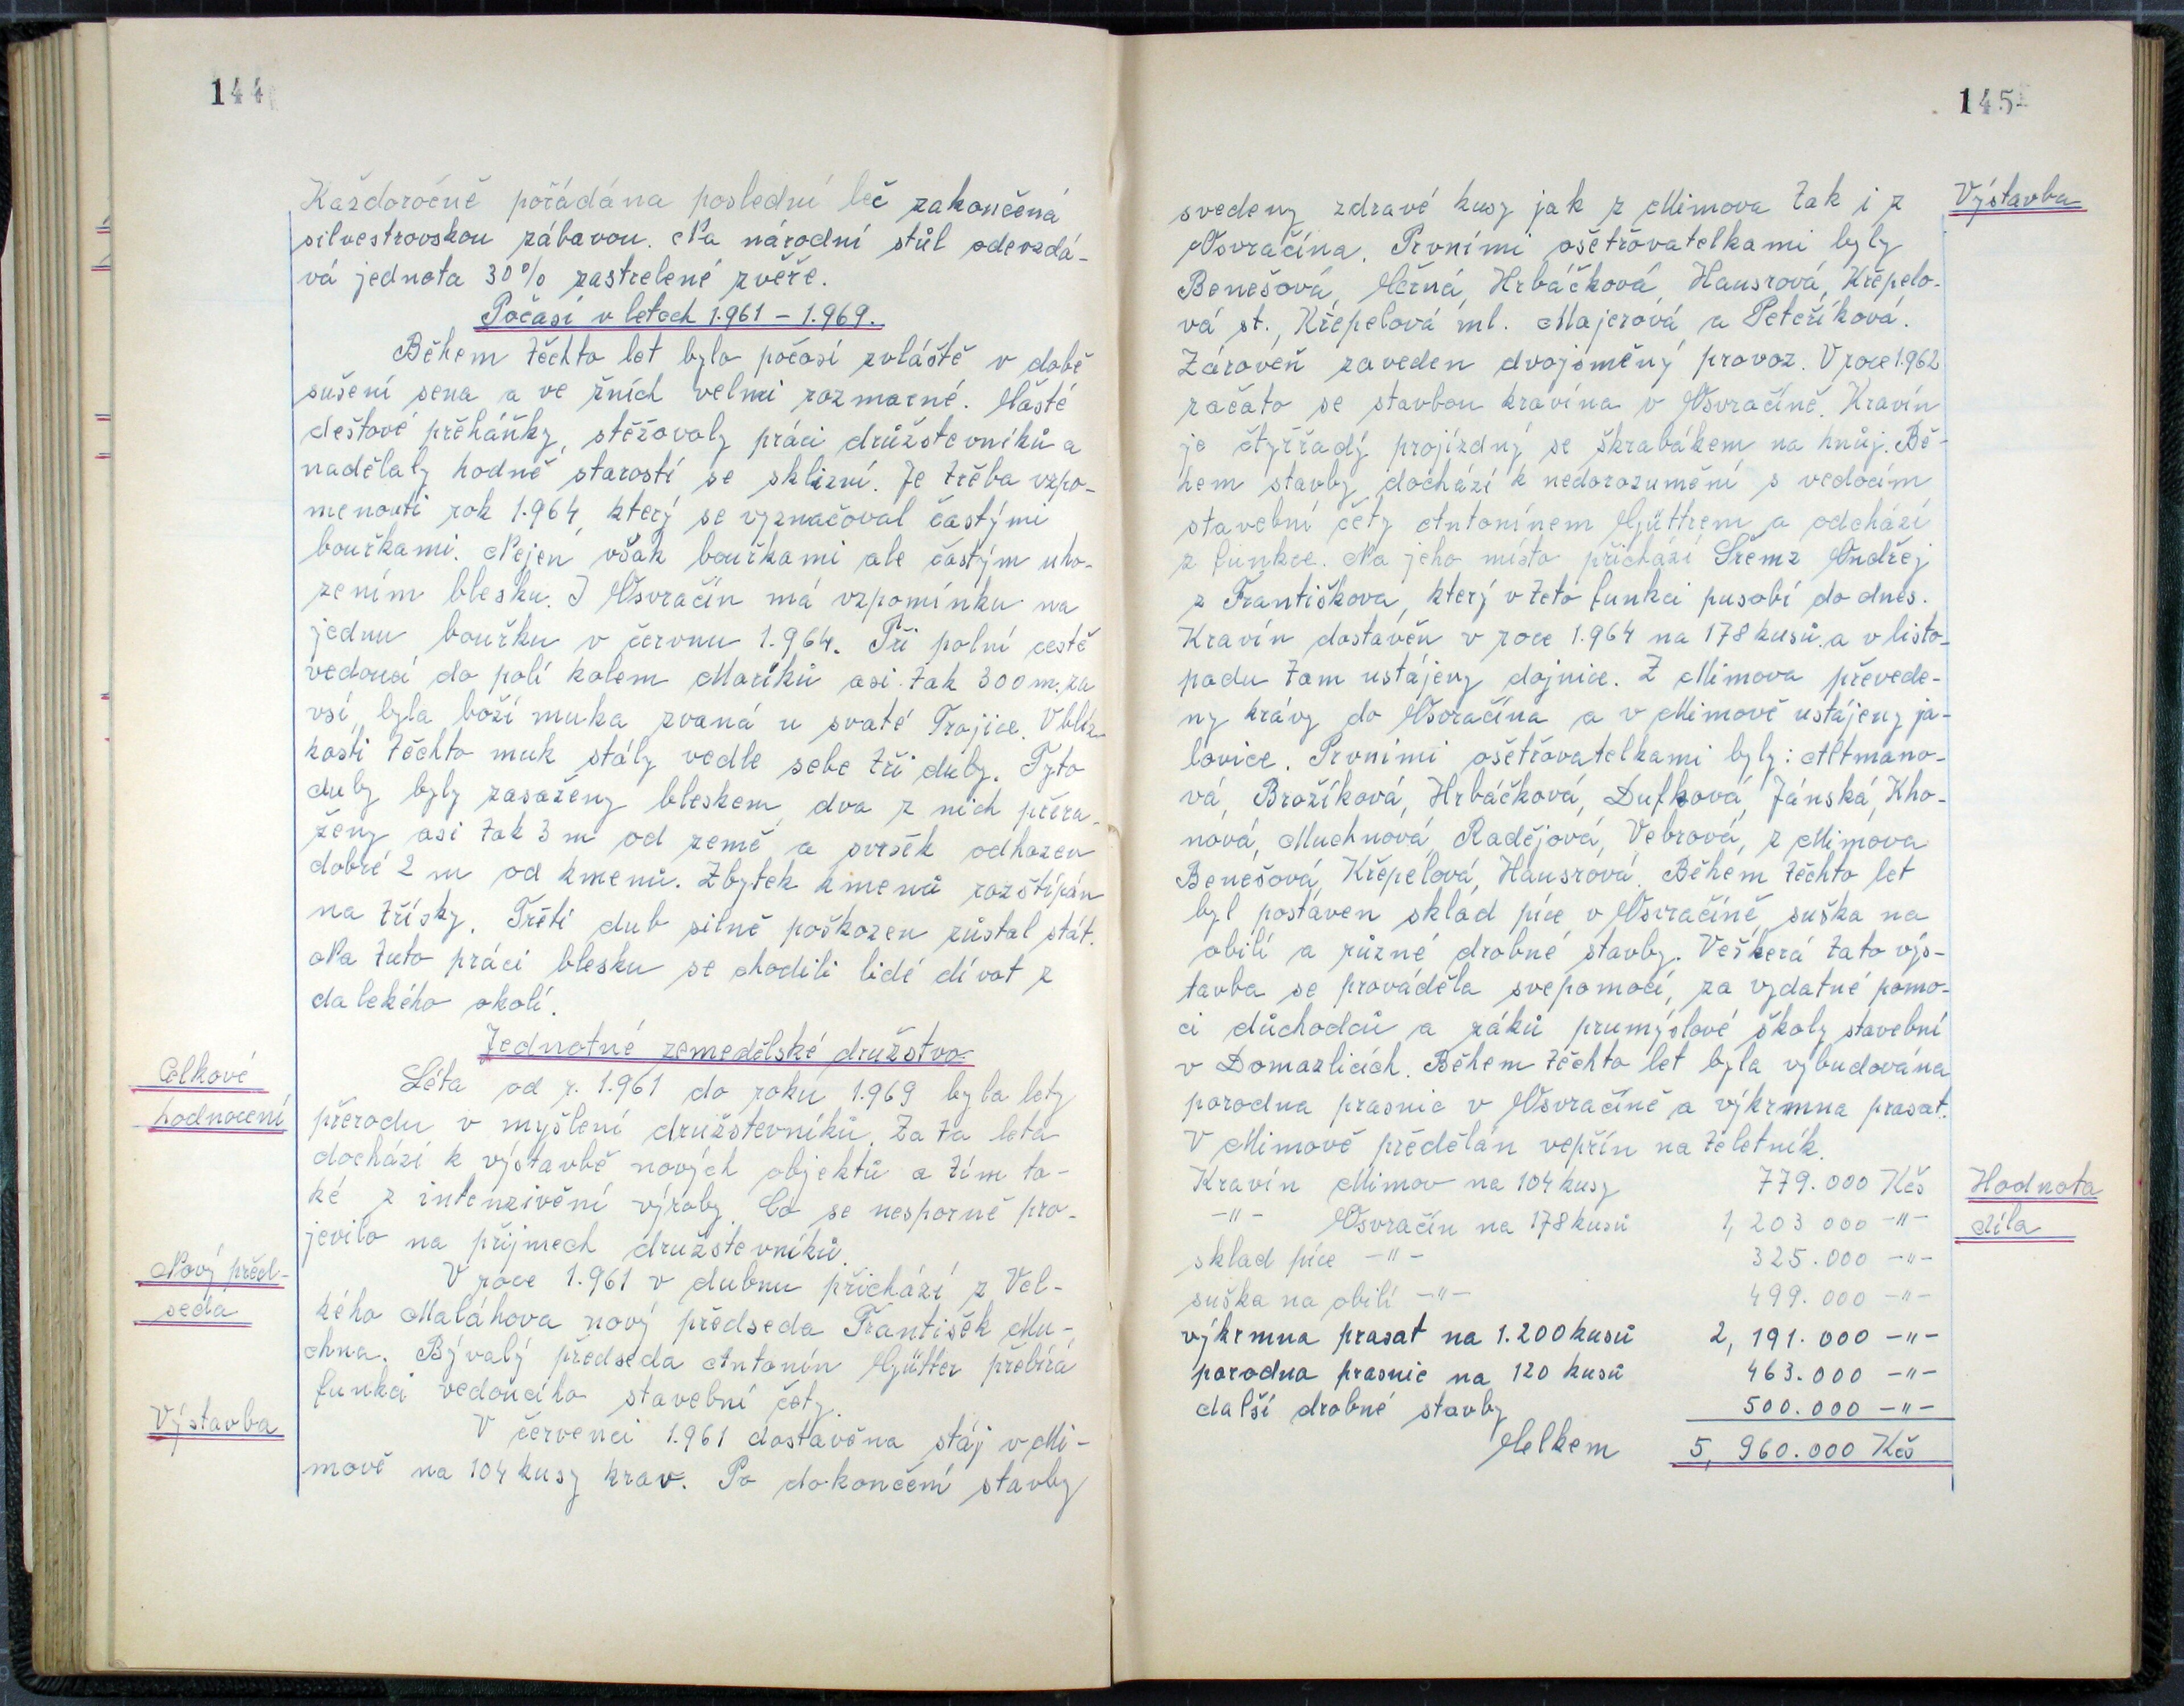 144
Každoročně pořádána poslední leč zakončená
silvestrovskou zábavou. Na národní stůl odevzdá-
vá jednota 30% zastrelené zvěře.
Počasí v letech 1.961 - 1.969.
Během těchto let bylo počasí zvláště v době
sušení sena a ve žních velmi rozmarné. Časté
deštové přeháňky, stěžovaly práci družstevníků a
nadělaly hodně starostí se sklizní. Je třeba vzpo-
menouti rok 1.964, který se vyznačoval častými
bouřkami. Nejen však bouřkami ale častým uho-
zením blesku. I Osvračín má vzpomínku na
jednu bouřku v červnu 1.964. Při polní cestě
vedoucí do polí kolem Maříků asi tak 300 m. za
vsí, byla boží muka zvaná u svaté Trojice. V blíz-
kosti těchto muk stály vedle sebe tři duby. Tyto
duby byly zasaženy bleskem, dva z nich přera-
ženy asi tak 3 m od země a svršek odhozen
dobré 2 m od kmenů. Zbytek kmenů rozštípán
na třísky. Třetí dub silně poškozen zůstal stát.
Na tuto práci blesku se chodili lidé dívat z
dalekého okolí.
Jednotné zemedělské družstvo
Celkové
hodnocení
Léta od r. 1.961 do roku 1.969 byla lety
přerodu v myšlení družstevníků. Za ta leta
dochází k výstavbě nových objektů a tím ta-
ké z intenzivění výroby. Co se nesporně pro-
jevilo na příjmech družstevníků.
Nový před-
seda
V roce 1.961 v dubnu přichází z Vel-
kého Maláhova nový předseda František Mu-
chna. Bývalý předseda Antonín Gütter přebírá
funkci vedoucího stavební čety.
Výstavba
V červenci 1.961 dostavěna stáj v Mi-
mově na 104 kusy krav. Po dokončení stavby
145
Výstavba
svedeny zdravé kusy jak z Mimova tak i z
Osvračína. Prvními ošetřovatelkami byly
Benešová, Černá, Hrbáčková, Hausrová, Křepelo-
vá st., Křepelová ml. Majerová a Peteříková.
Zároveň zaveden dvojsměný provoz. V roce 1.962
začato se stavbou kravína v Osvračíně. Kravín
je čtyřřadý projízdný se škrabákem na hnůj. Bě-
hem stavby dochází k nedorozumění s vedocím
stavební čety Antonínem Güttrem a odchází
z funkce. Na jeho místo přichází Šlemz Ondřej
z Františkova, který v teto funkci pusobí do dnes.
Kravín dostavěn v roce 1.964 na 178 kusů a v listo-
padu tam ustájeny dojnice. Z Mimova převede-
ny krávy do Osvračína a v Mimově ustájeny ja-
lovice. Prvními ošetřovatelkami byly: Altmano-
vá, Brožíková, Hrbáčková, Dufková, Jánská, Kho-
nová, Muchnová, Radějová, Vebrová, z Mimova
Benešová, Křepelová, Hausrová. Během těchto let
byl postaven sklad píce v Osvračíně, suška na
obilí a různé drobné stavby. Veškerá tato výs-
tavba se prováděla svepomocí, za vydatné pomo-
ci důchodců a žáků prumyslové školy stavební
v Domazlicích. Během těchto let byla vybudována
porodna prasnic v Osvračíně a výkrmna prasat.
V Mimově předělán vepřín na teletník.
Hodnota
díla
Kravín Mimov na 104 kusy 779.000 Kčs
-"- Osvračín na 178 kusů 1,203 000 -"-
sklad píce -"- 325.000 -"-
suška na obilí -"- 499.000 -"-
výkrmna prasat na 1.200 kusů 2,191.000 -"-
porodna prasnic na 120 kusů 463.000 -"-
další drobné stavby 500.000 -"-
Celkem 5,960.000 Kčs